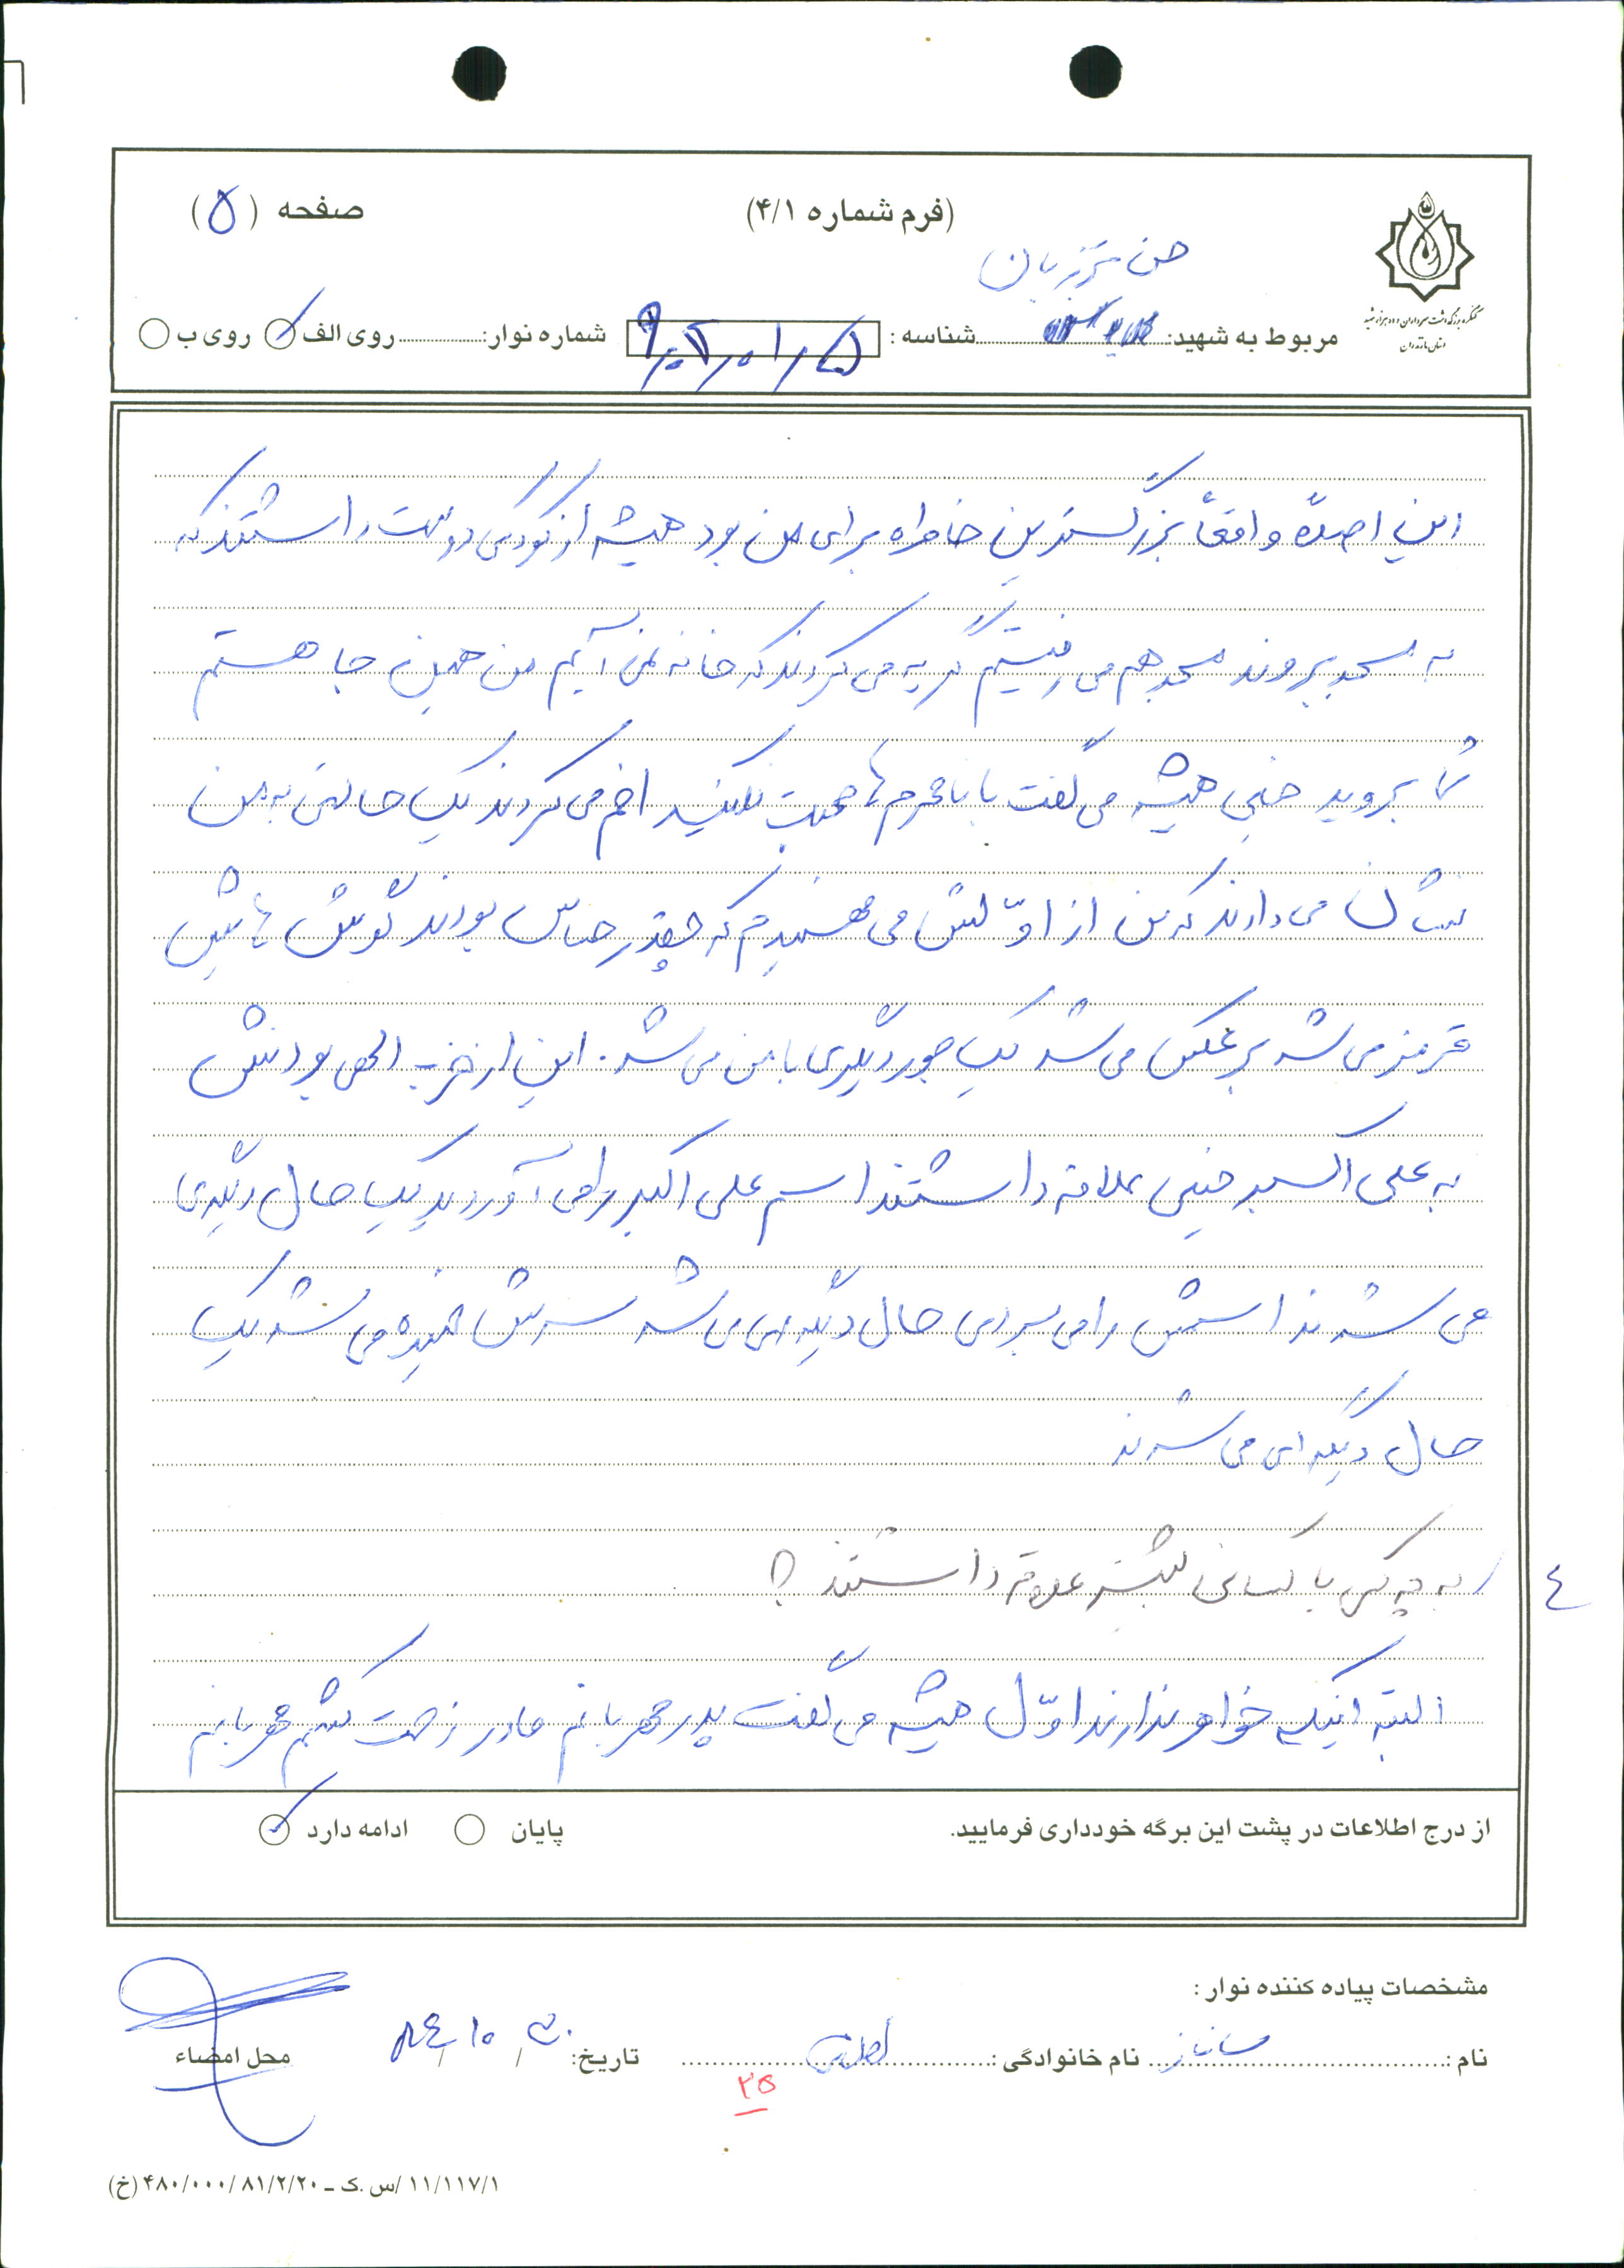 (فرم شماره ۴/۱)
صفحه (۵)
حسن
کنگره بزرگداشت سرداران و ده هزار شهید
استان مازندران
مربوط به شهید: شناسه: شماره نوار: روی الف روی ب
این اصلاً واقعاً بزرگسترین خاطره برای من بود همیشه از کودکی دوست داشتند که
به مسجد بروند مسجد هم می رفتیم گریه می کردند که خانه نمی آیم من همین جا هستم
شما بروید خیلی همیشه می گفت با نامحرم ها صحبت نکنید اخم می کردند یک حالتی به من
نشان می دادند که من از اولش می فهمیدم که چقدر حساس بودند گوش هایش
قرمز می شد برعکس می شد یک جور دیگری با من می شد. این از حزب الهی بودنش
به علی اکبر خیلی علاقه داشتند اسم علی اکبر را می آوردید یک حال دیگری
می شدند اسمش را می بردی حال دیگه ای می شد سرش خمیده می شد یک
حال دیگه ای می شدند
۴ / به چه کس یا کسانی بیشتر علاقه داشتند؟
البته اینکه خواهر ندارند اوّل همیشه می گفت پدر مهربانم مادر زحمت کشم مهربانم
از درج اطلاعات در پشت این برگه خودداری فرمایید. پایان ادامه دارد
مشخصات پیاده کننده نوار:
نام: ساناز نام خانوادگی: تاریخ: محل امضاء
۲۵
۱۱/۱۱۷/۱ /س.ک ـ ۴۸۰/۰۰۰/۸۱/۲/۲۰ (خ)